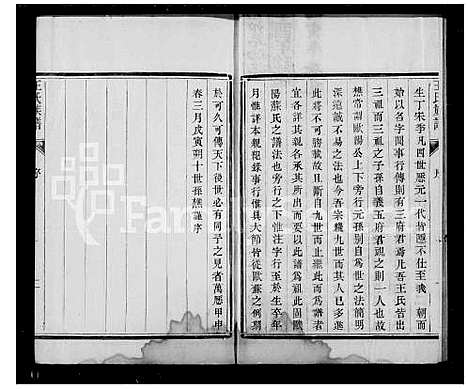 王氏族譜
序
生丁朱季凡四世歷元一代皆隱不仕至我 朝而
始以名字聞事行傳則有三府君焉凡吾王氏皆出
三祖而三祖之子孫自義五府君視之則一人也
樵嘗謂歐陽公上下旁行元孫別自為世之法簡明
深遠誠不易之法也今吾宗纔九世而其人已多進
此將不可勝載故且斷自九世而止繼此而為譜者
宜各詳其親各承其所出而要以此譜為祖此固歐
陽蘇氏之譜法也旁行之下惟注字行至於生卒年
月惟詳本親紀錄事行惟具大節皆從歐蘇之例期
於可久可傳天下後世必有同予之見者萬歷甲申
春三月戊寅朔十世孫樵謹序
王氏族譜
序